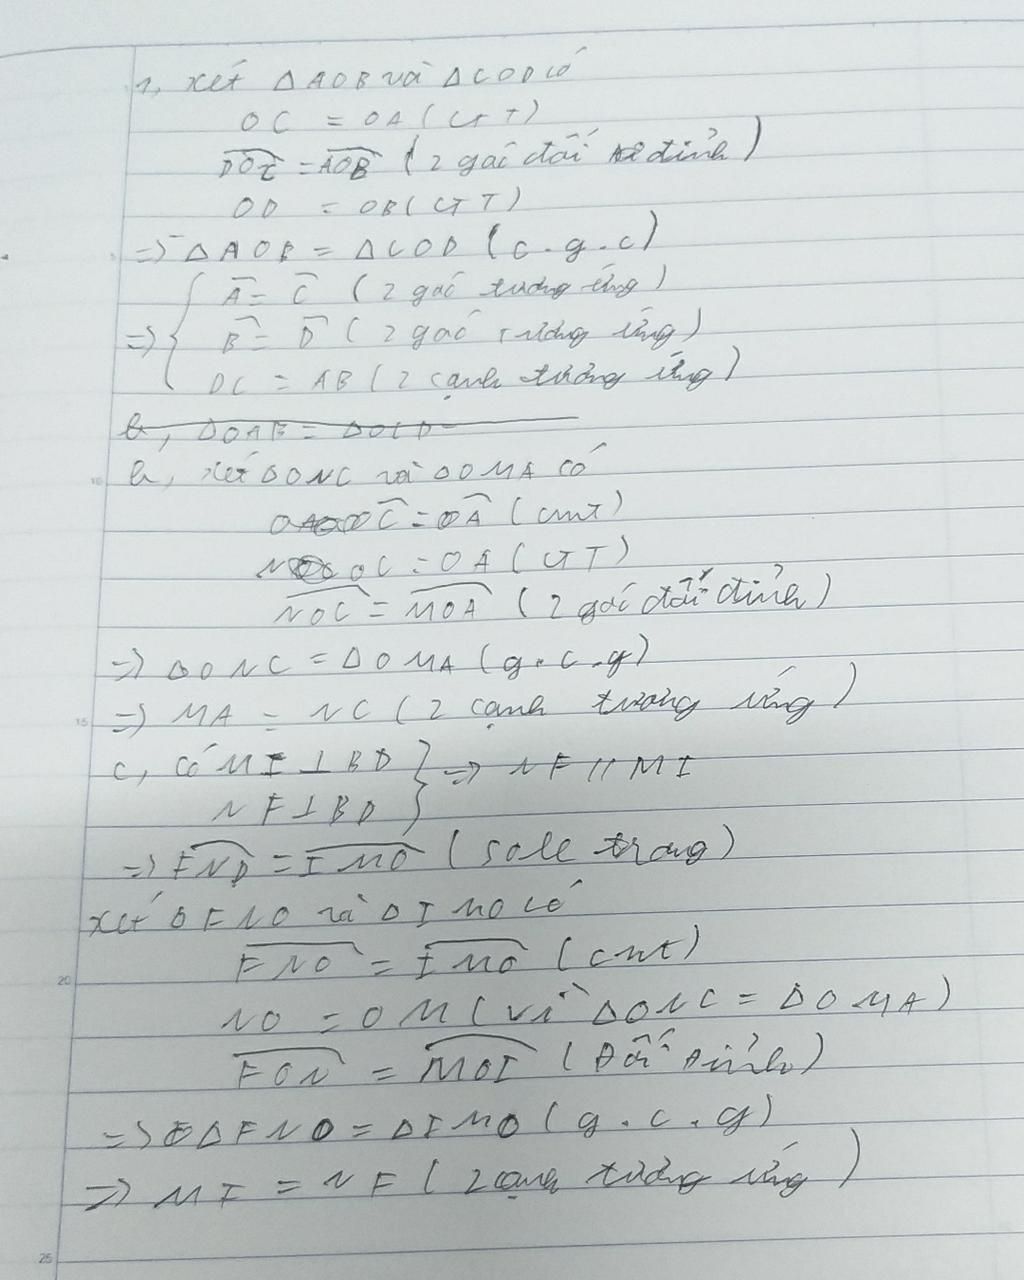 1, xét ΔAOB và ΔCOD có
OC = OA (GT)
DOC = AOB (2 góc đối đỉnh)
OD = OB (GT)
=> ΔAOB = ΔCOD (c.g.c)
A = C (2 góc tương ứng)
=> { B = D (2 góc tương ứng)
DC = AB (2 cạnh tương ứng)
b, ΔOAB = ΔOCD
b, xét ΔONC và ΔOMA có
C = A (cmt)
OC = OA (GT)
NOC = MOA (2 góc đối đỉnh)
=> ΔONC = ΔOMA (g.c.g)
=> MA = NC (2 cạnh tương ứng)
c, có MI ⊥ BD } => NF // MI
NF ⊥ BD
=> FND = IMO (sole trong)
xét ΔFNO và ΔIMO có
FNO = IMO (cmt)
NO = OM (vì ΔONC = ΔOMA)
FON = MOI (Đối đỉnh)
=> ΔFNO = ΔIMO (g.c.g)
=> MI = NF (2 cạnh tương ứng)
10
15
20
25